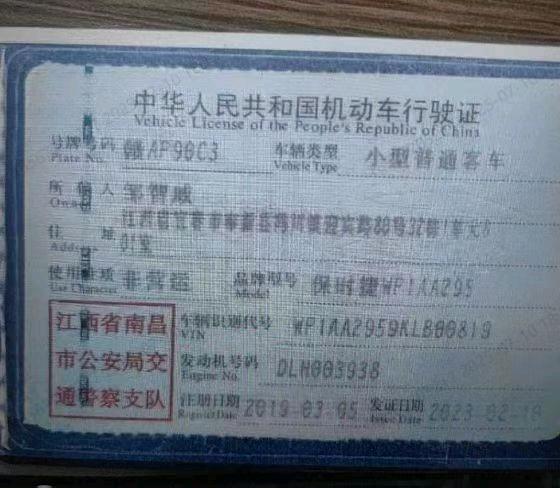 中华人民共和国机动车行驶证
Vehicle License of the People's Republic of China
号牌号码 赣AF90C3 车辆类型 小型普通客车
Plate No. Vehicle Type
所有人 邹智威
Owner
住址 江西省宜春市奉新县冯川镇迎宾路80号32幢1单元
01室
Address
使用性质 非营运 品牌型号 保时捷WP1AA295
Use Character Model
江西省南昌
市公安局交
通警察支队
车辆识别代号 WP1AA2959KLB00819
VIN
发动机号码 DLH003938
Engine No.
注册日期 2019-03-05 发证日期 2023-02-
Register Date Issue Date